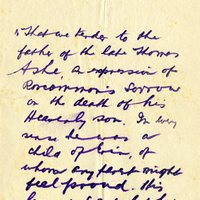 "That we tender to the
father of the late Thomas
Ashe, an expression of
Roscommon's sorrow
on the death of his
Heavenly son. In every
sense he was a
child of Erin, of
whom any parent might
feel proud. His